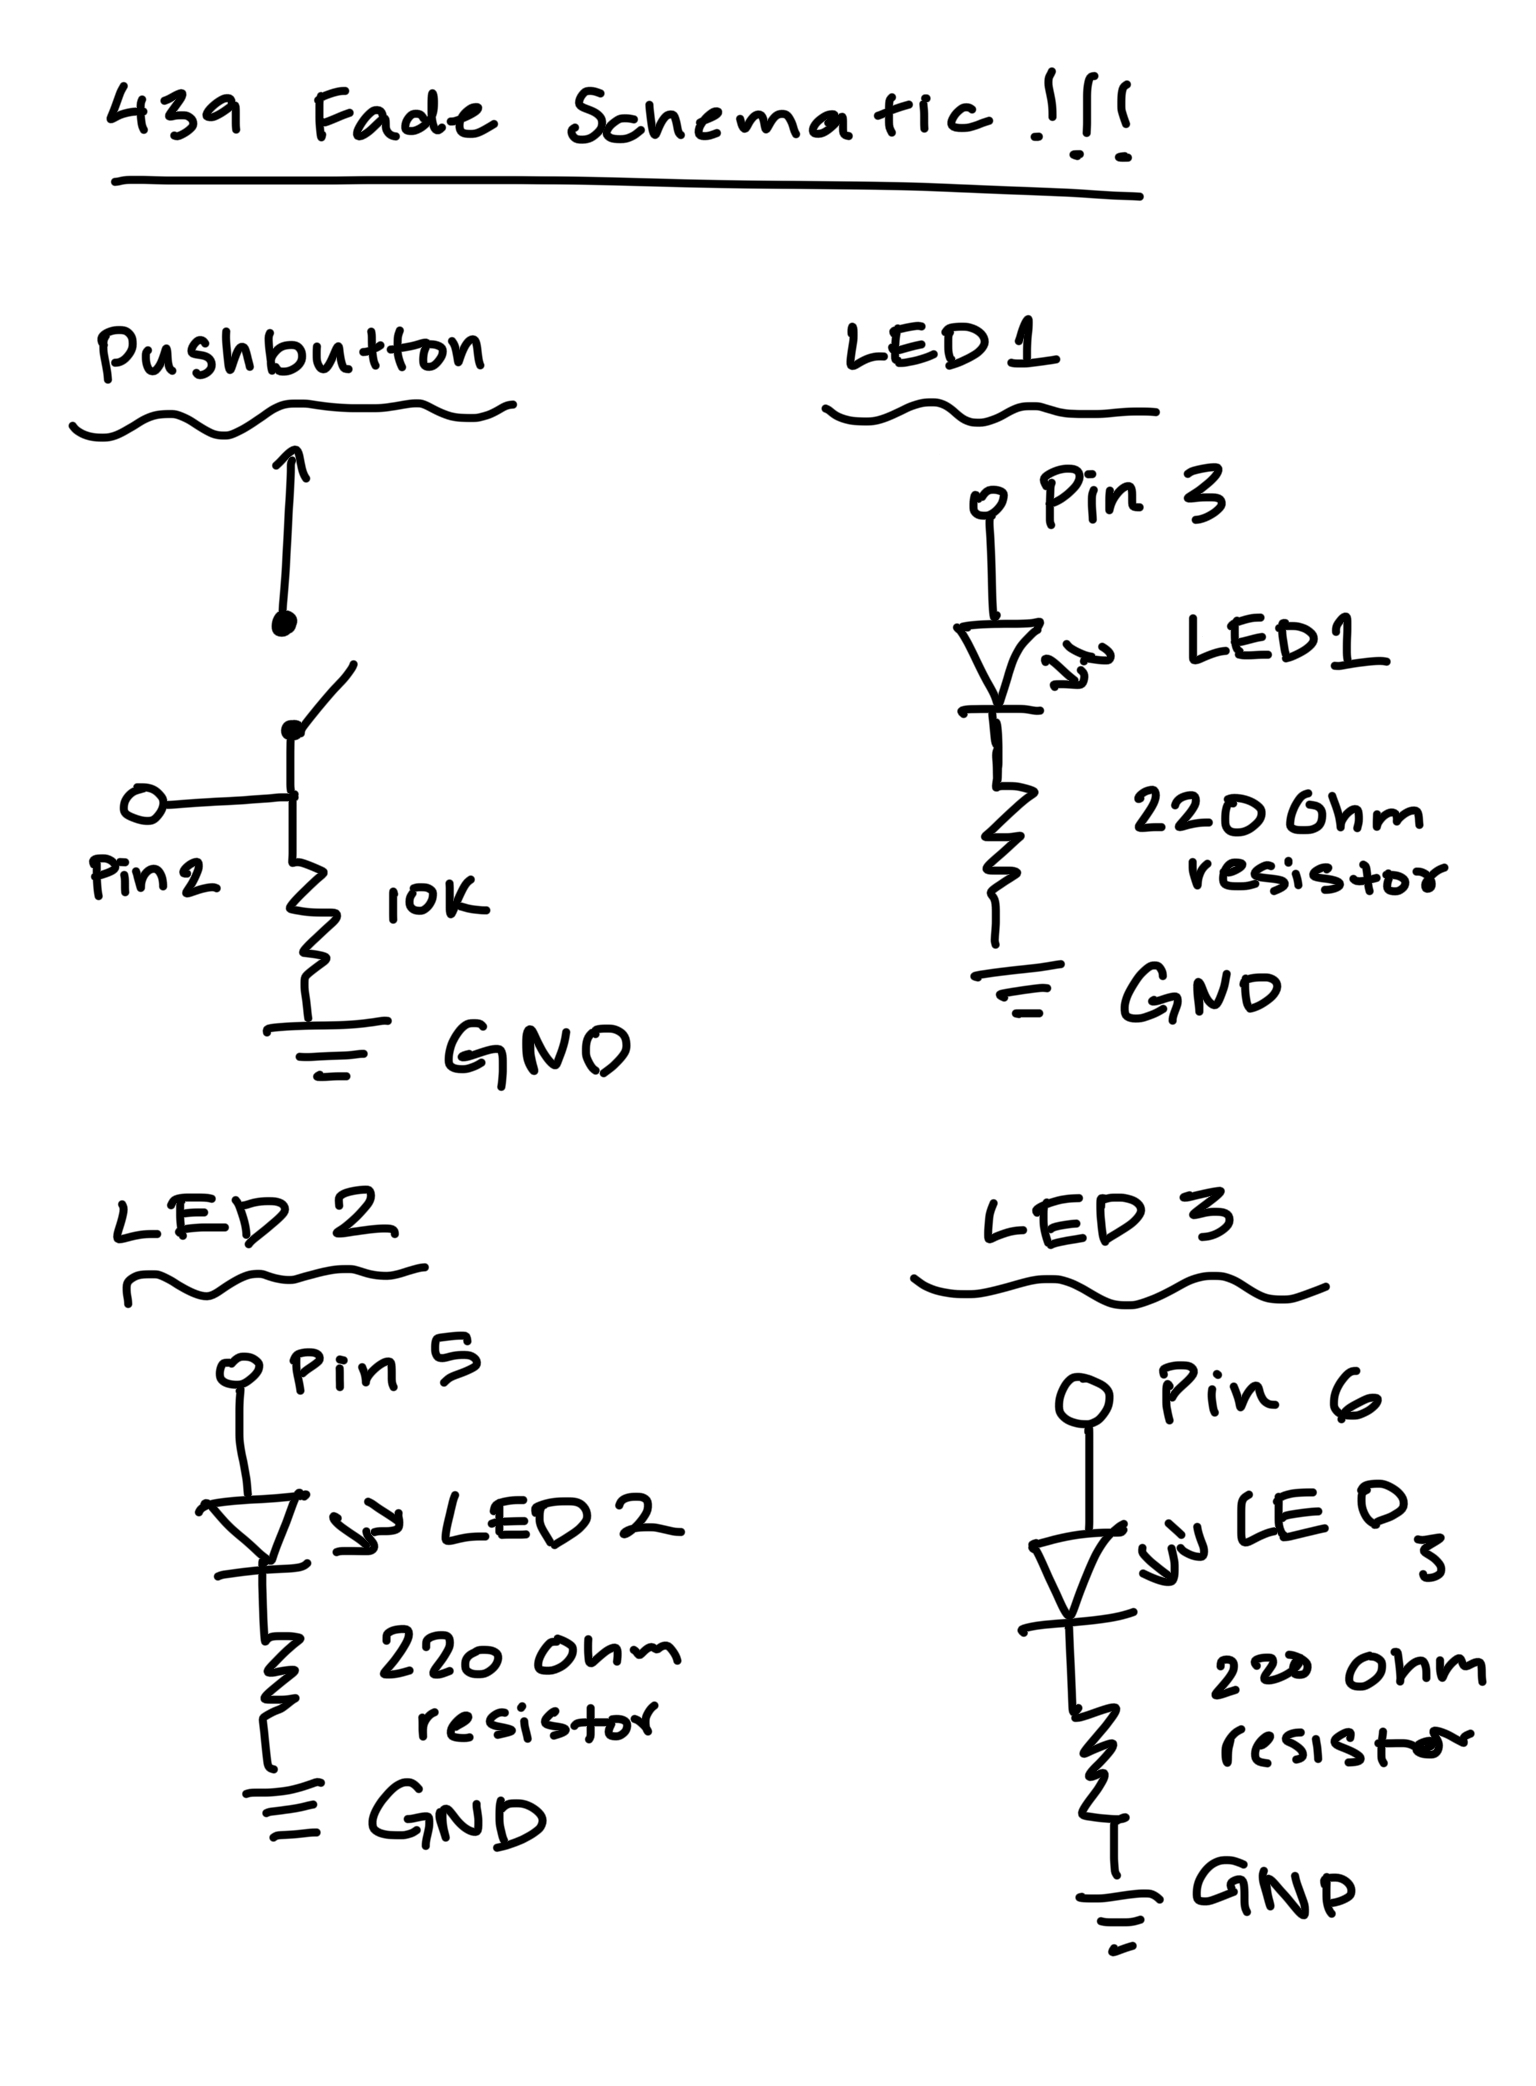 439 Fade Schematic !!!
Pushbutton
Pin 2
10K
GND
LED 1
Pin 3
LED 1
220 Ohm
resistor
GND
LED 2
Pin 5
LED 2
220 Ohm
resistor
GND
LED 3
Pin 6
LED 3
220 Ohm
resistor
GND